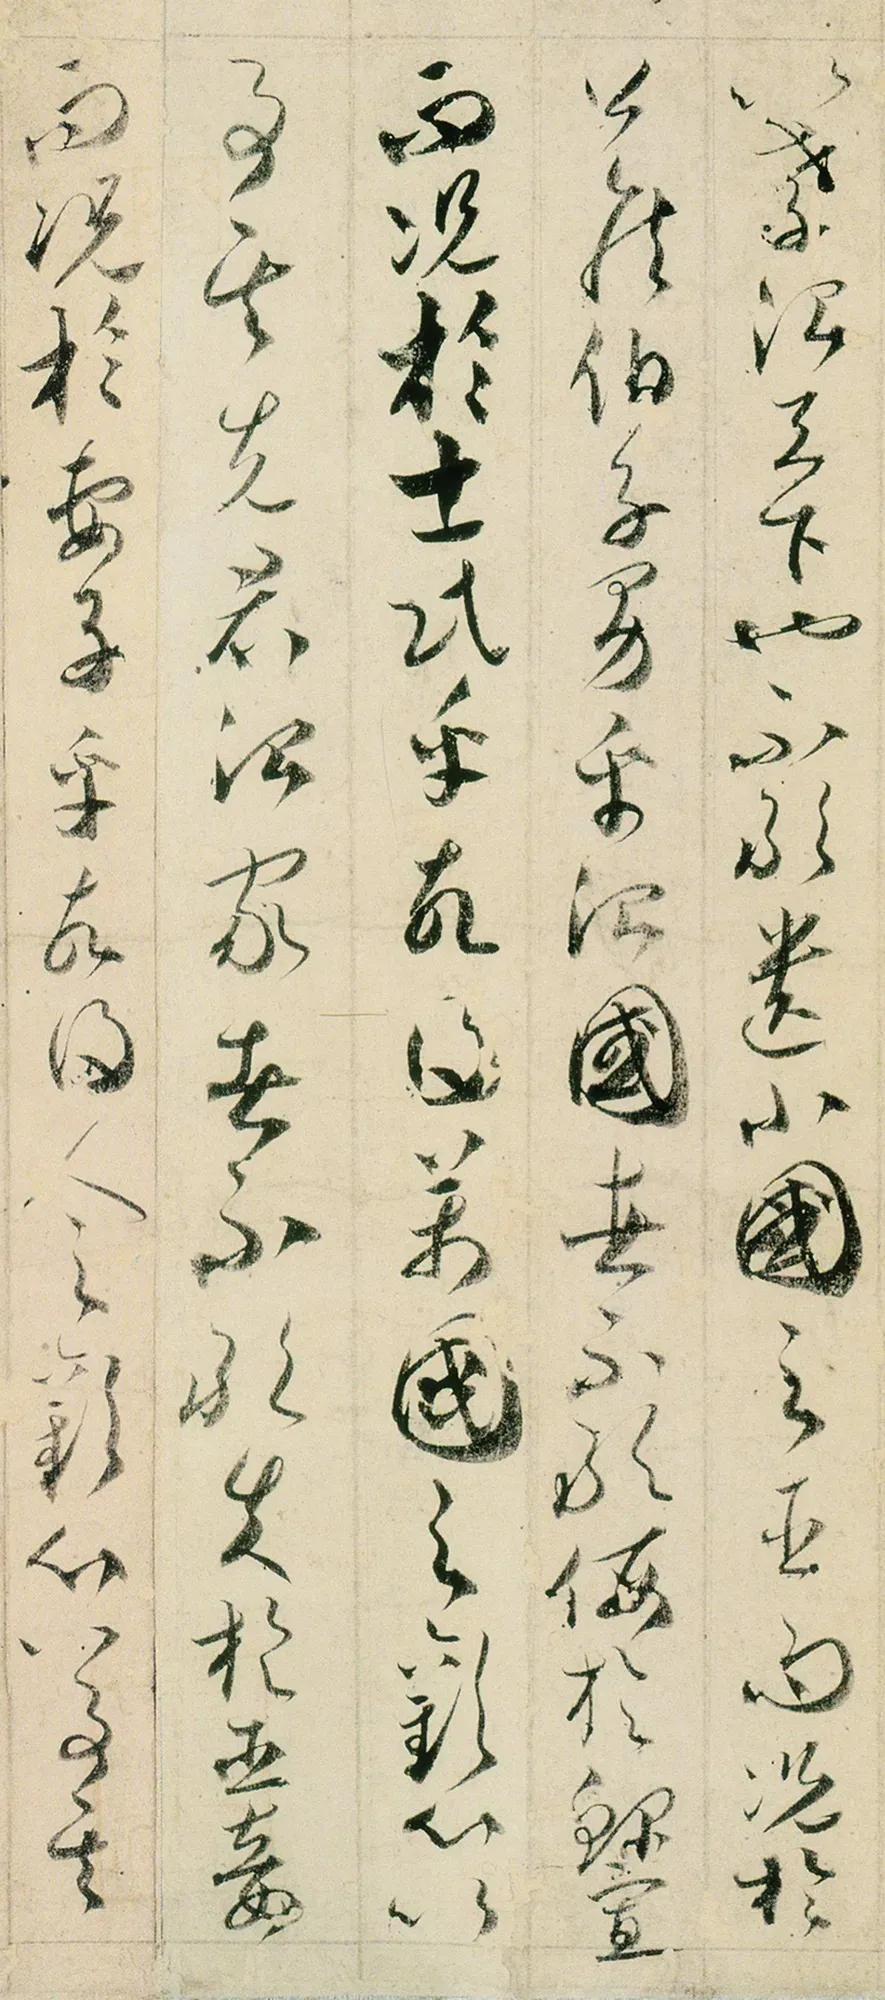 以孝治天下也不敢遺小國之臣而況於
公侯伯子男乎治國者不敢侮於鰥寡
而況於士民乎故得萬國之歡心以
事其先君治家者不敢失於臣妾
而況於妻子乎故得人之歡心以事其